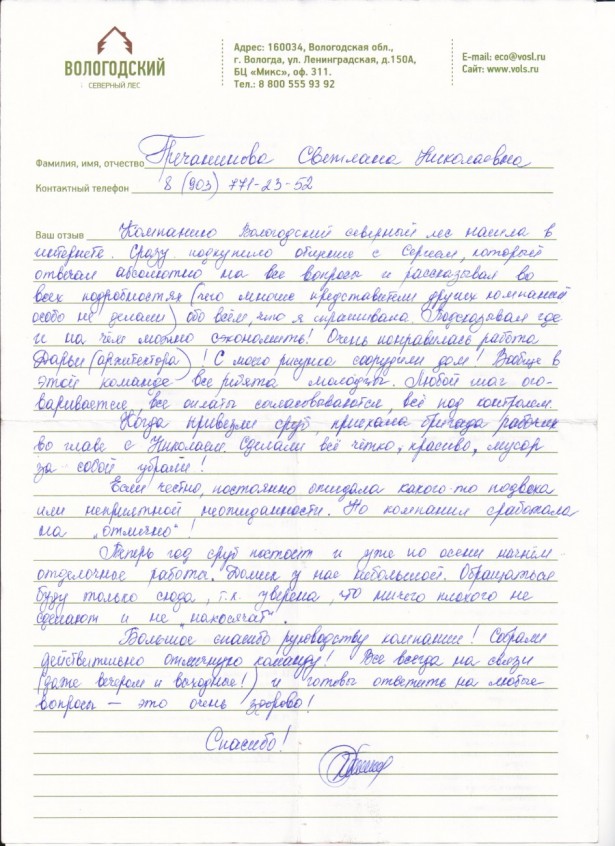 ВОЛОГОДСКИЙ
СЕВЕРНЫЙ ЛЕС
Адрес: 160034, Вологодская обл.,
г. Вологда, ул. Ленинградская, д.150А,
БЦ «Микс», оф. 311.
Тел.: 8 800 555 93 92
E-mail: eco@vosl.ru
Сайт: www.vols.ru
Фамилия, имя, отчество Гречанинова Светлана Николаевна
Контактный телефон 8 (903) 771-23-52
Ваш отзыв Компанию Вологодский северный лес нашла в
интернете. Сразу подкупило общение с Сергеем, который
отвечал абсолютно на все вопросы и рассказывал во
всех подробностях (чего многие представители других компаний
особо не делали) обо всём, что я спрашивала. Подсказывал где
и на чём можно сэкономить! Очень понравилась работа
Дарьи (архитектора)! С моего рисунка соорудили дом! Вообще в
этой команде все ребята молодцы. Любой шаг ого-
варивается, все оплаты согласовываются, всё под контролем.
Когда привезли сруб, приехала бригада рабочих
во главе с Николаем. Сделали всё чётко, красиво, мусор
за собой убрали!
Если честно, постоянно ожидала какого-то подвоха
или неприятной неожиданности. Но компания сработала
на „отлично"!
Теперь год сруб постоит и уже по осени начнём
отделочные работы. Домик у нас небольшой. Обращаться
буду только сюда, т.к. уверена, что ничего плохого не
сделают и не „накосячат".
Большое спасибо руководству компании! Собрали
действительно отличную команду! Все всегда на связи
(даже вечером и выходные!) и готовы ответить на любые
вопросы – это очень здорово!
Спасибо!